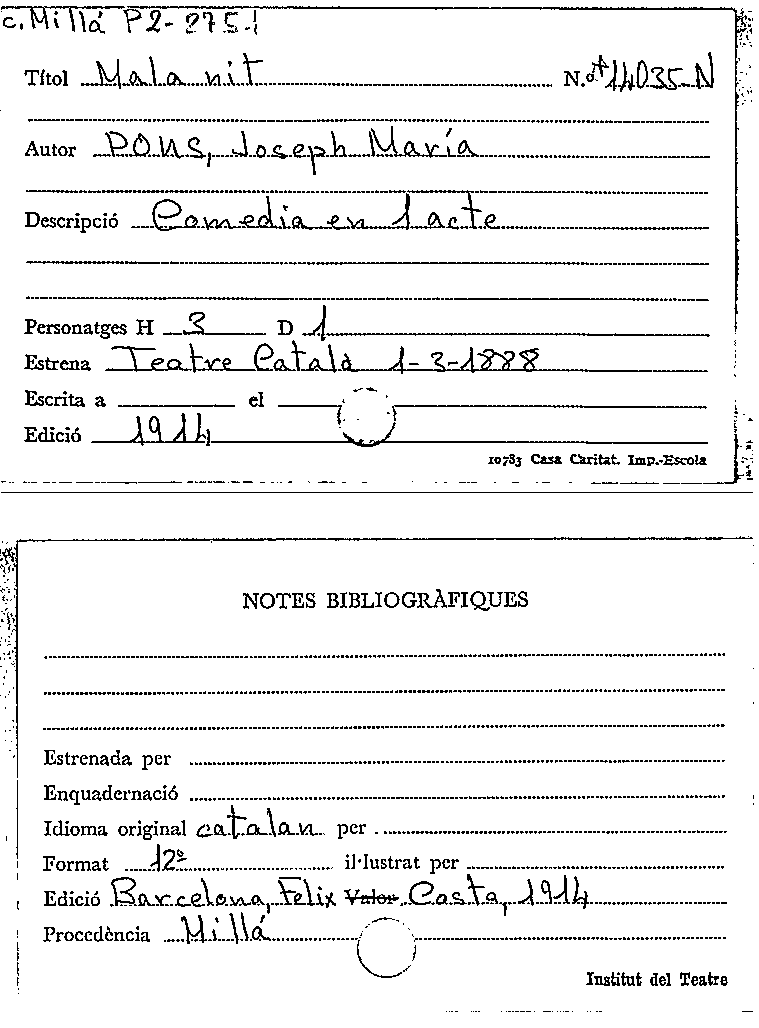 c. Millá P2-275-1
Títol Mala nit N.º 14035-N
Autor PONS, Joseph María
Descripció Comedia en 1 acte
Personatges H 3 D 1
Estrena Teatre Català 1-3-1888
Escrita a el
Edició 1914
10783 Casa Caritat. Imp.-Escola
NOTES BIBLIOGRÀFIQUES
Estrenada per
Enquadernació
Idioma original catalan per
Format 12º il·lustrat per
Edició Barcelona, Felix Valor Costa, 1914
Procedència Millá
Institut del Teatre